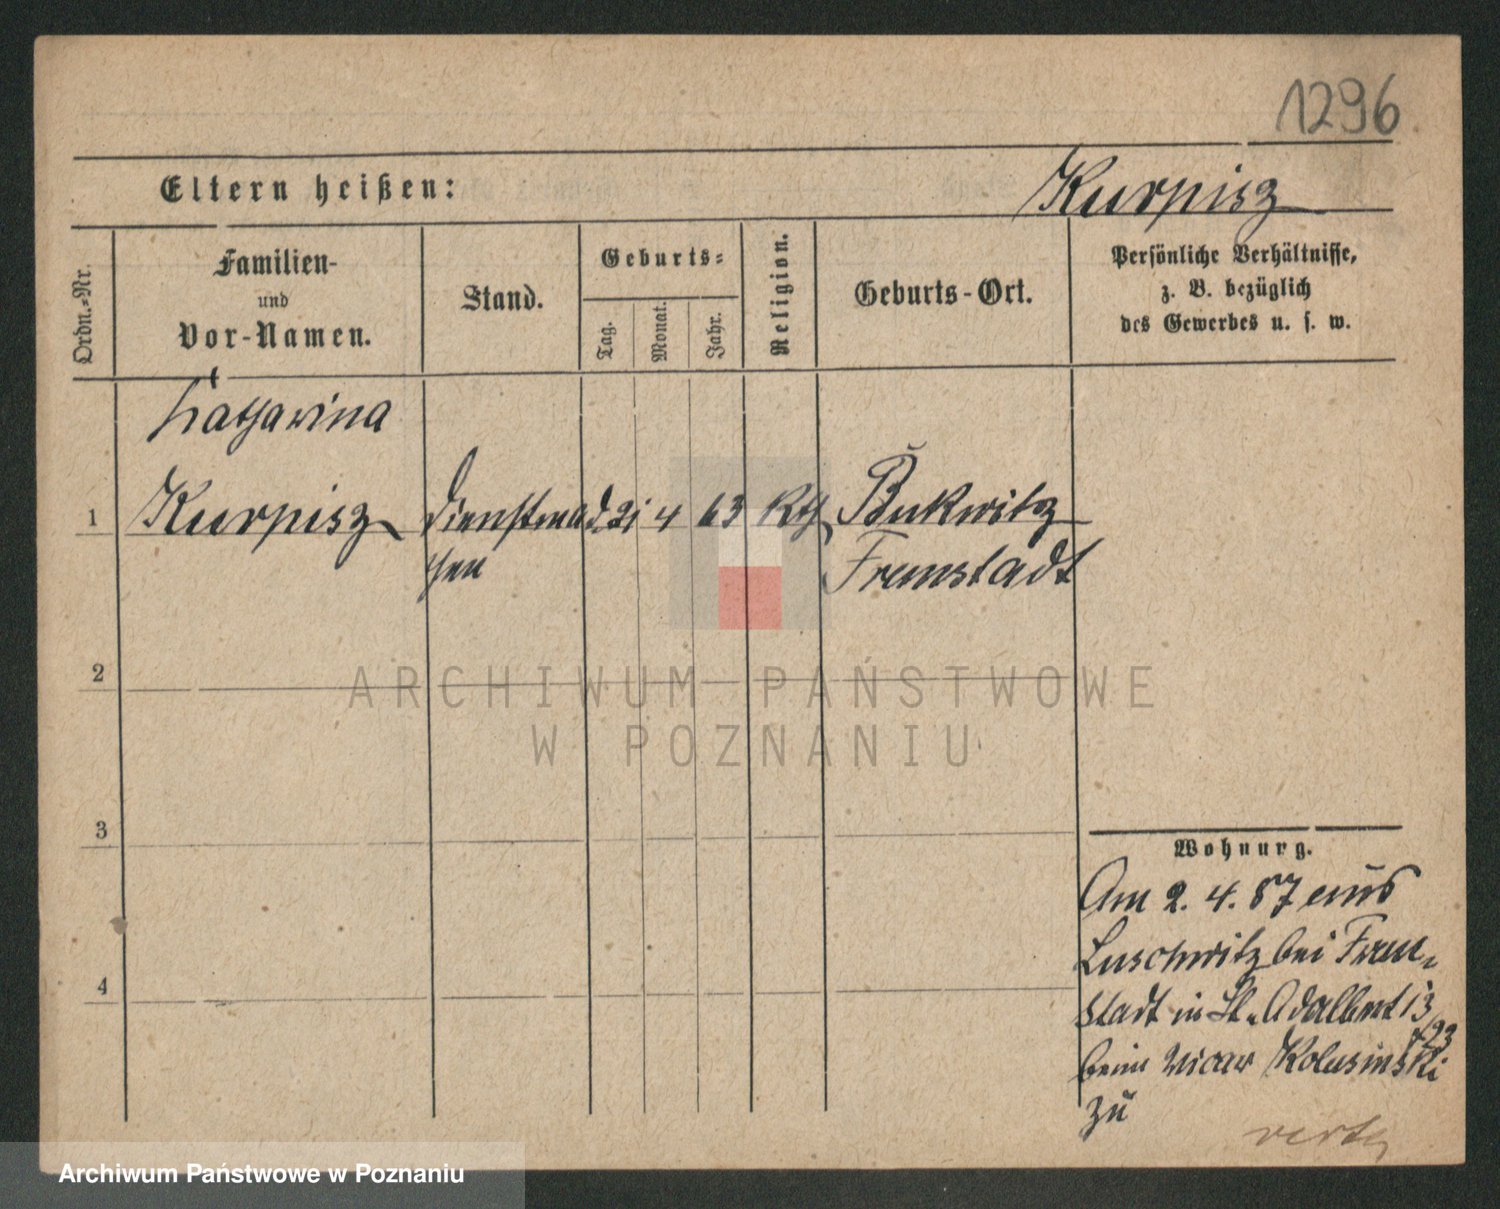 1296
Eltern heißen:
Kurpisz
Ordn.=Nr.
Familien-
und
Vor-Namen.
Stand.
Geburts=
Tag.
Monat.
Jahr.
Religion.
Geburts-Ort.
Persönliche Verhältnisse,
z. B. bezüglich
des Gewerbes u. s. w.
Katharina
1 Kurpisz Dienstmäd 21 4 63 Kth Bukwitz
chen Fraustadt
2
3
4
Wohnung.
Am 2. 4. 87 aus
Luschwitz bei Frau-
stadt in St. Adalbert 13
beim Vicar Kolasinski
zu
verte
ARCHIWUM PAŃSTWOWE
W POZNANIU
Archiwum Państwowe w Poznaniu